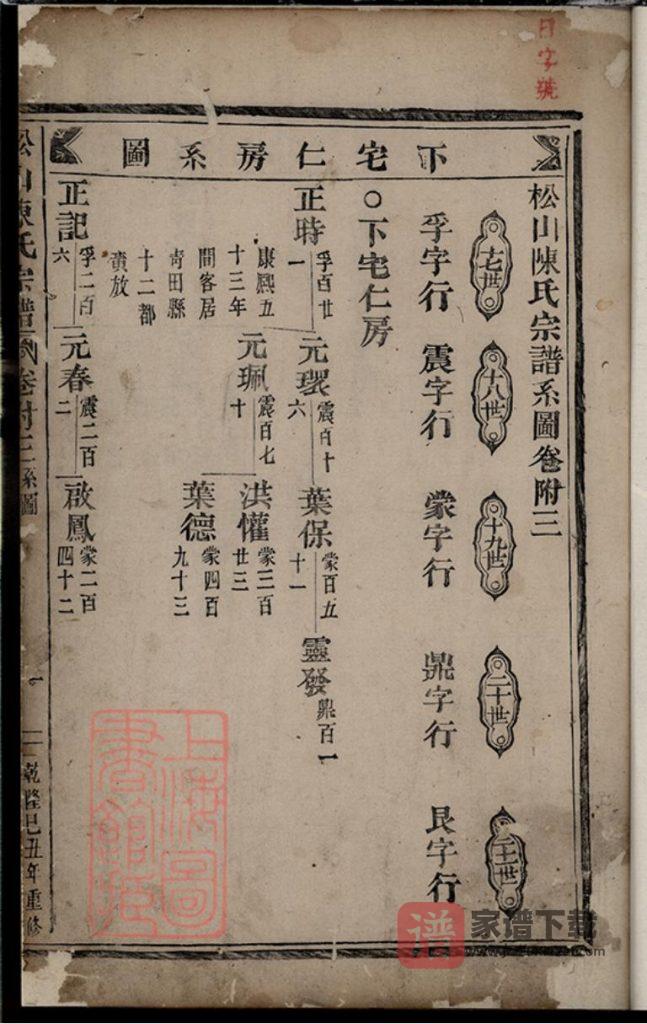 日字號
下宅仁房系圖
松山陳氏宗譜系圖卷附三
十七世
十八世
十九世
二十世
二十一世
孚字行
震字行
蒙字行
鼎字行
艮字行
○下宅仁房
正時
孚百廿一
康熙五十三年間客居青田縣十二都賣放
元環
震百十六
葉保
蒙百五十一
靈發
鼎百一
元珮
震百七十
洪懽
蒙三百廿三
葉德
蒙四百九十三
正記
孚二百六
元春
震二百二
啟鳳
蒙二百四十二
松山陳氏宗譜 卷附三 系圖
乾隆己丑年重修
上海圖書館藏
谱 家谱下载